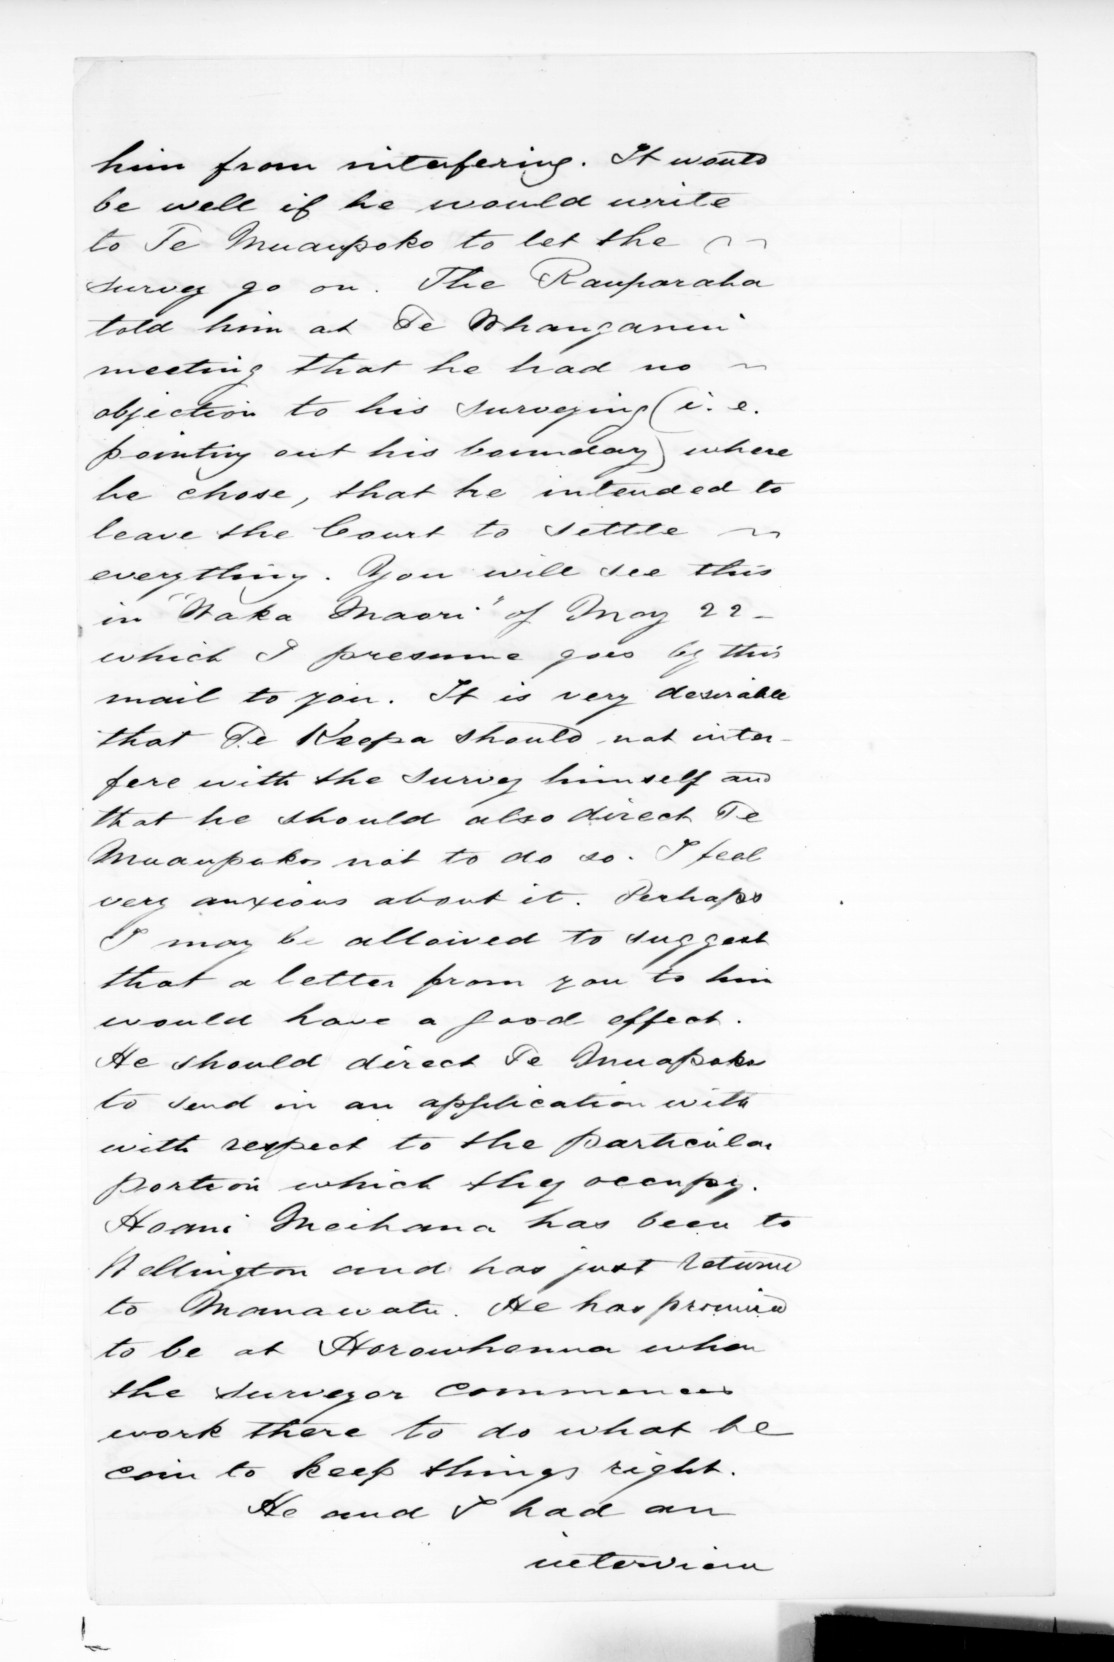 him from interfering. It would
be well if he would write
to Te Muaupoko to let the
survey go on. The Rauparaha
told him at Te Whanganui
meeting that he had no
objection to his surveying (i.e.
pointing out his boundary) where
he chose, that he intended to
leave the Court to settle
everything. You will see this
in "Waka Maori" of May 22 -
which I presume goes by this
mail to you. It is very desirable
that Te Keepa should not inter-
fere with the survey himself and
that he should also direct Te
Muaupoko not to do so. I feel
very anxious about it. Perhaps
I may be allowed to suggest
that a letter from you to him
would have a good effect.
He should direct Te Muapoko
to send in an application with
with respect to the particular
portion which they occupy.
Hoani Meihana has been to
Wellington and has just returned
to Manawatu. He has promised
to be at Horowhenua when
the surveyor commences
work there to do what he
can to keep things right.
He and I had an
interview